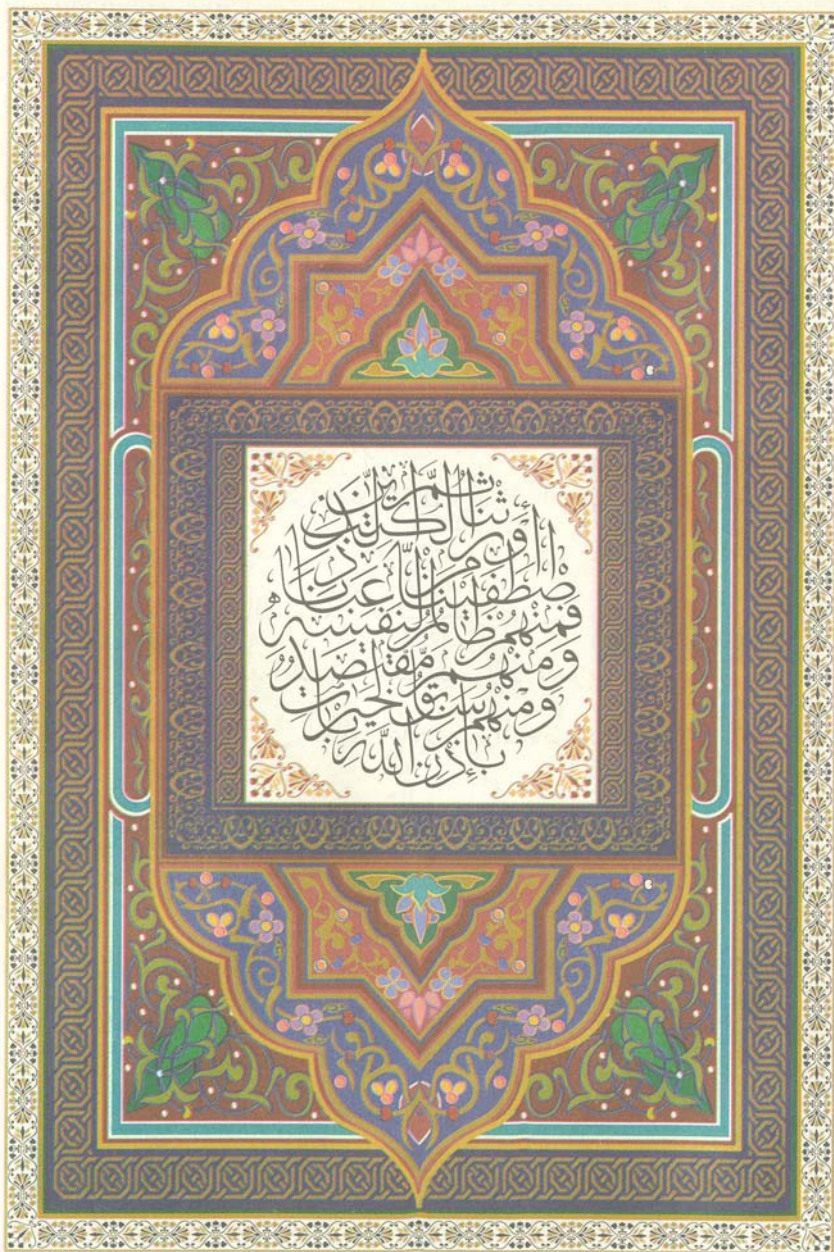 ثم أورثنا الكتاب الذين
اصطفينا من عبادنا
فمنهم ظالم لنفسه
ومنهم مقتصد
ومنهم سابق بالخيرات
بإذن الله